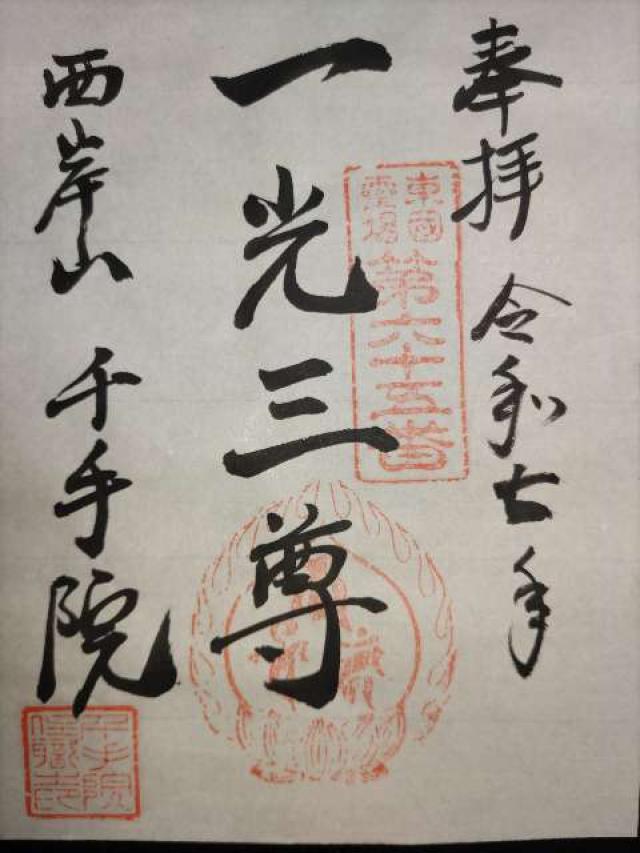 奉拝 令和七年
東國
靈場
第六十五番
一光三尊
西岸山 千手院
千手院